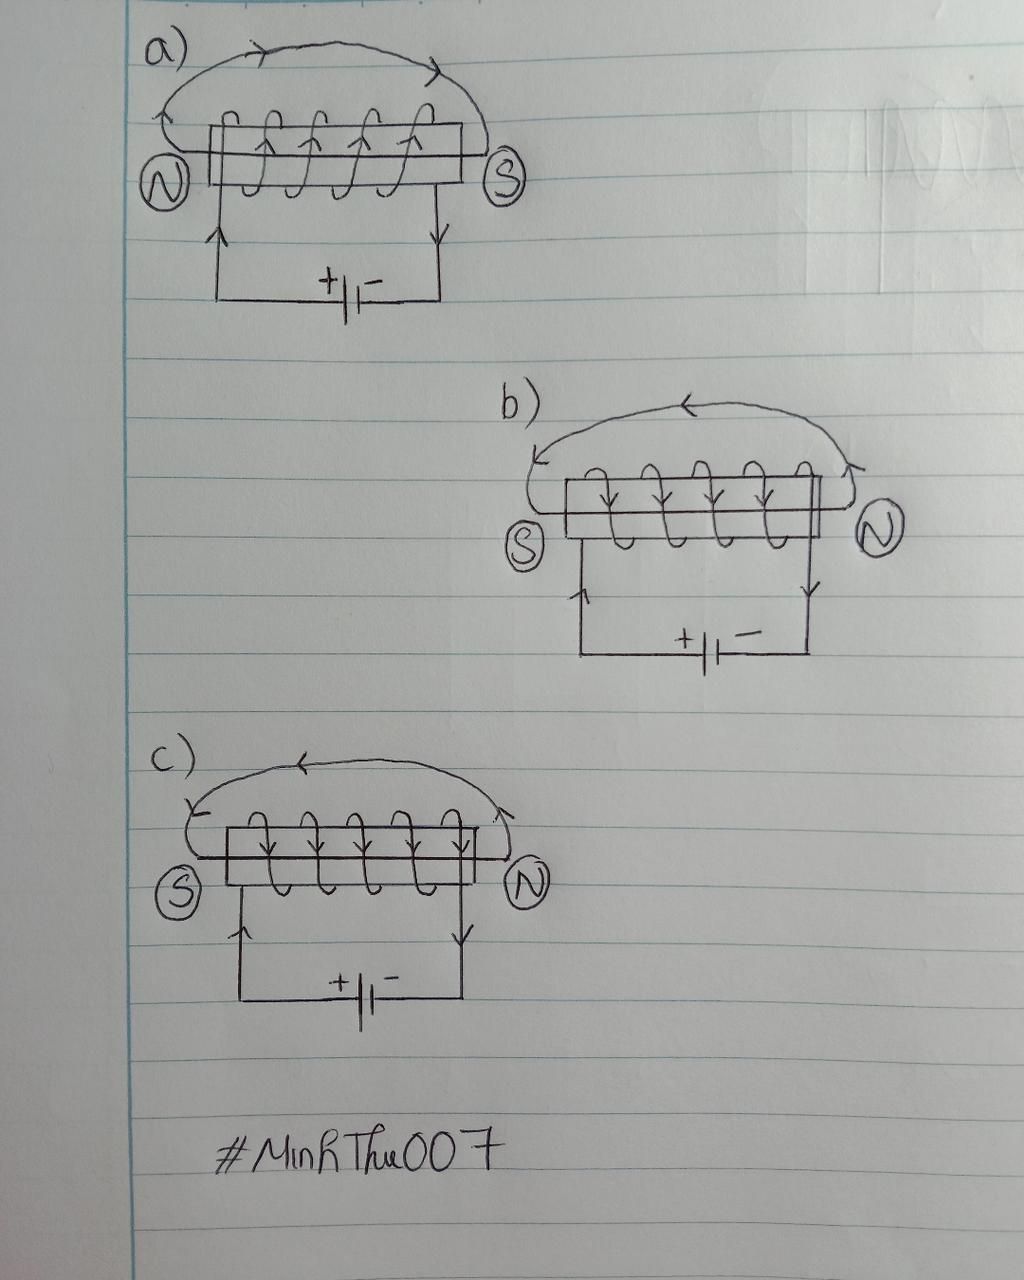 a)
N
S
+ -
b)
S
N
+ -
c)
S
N
+ -
#MinhThu007